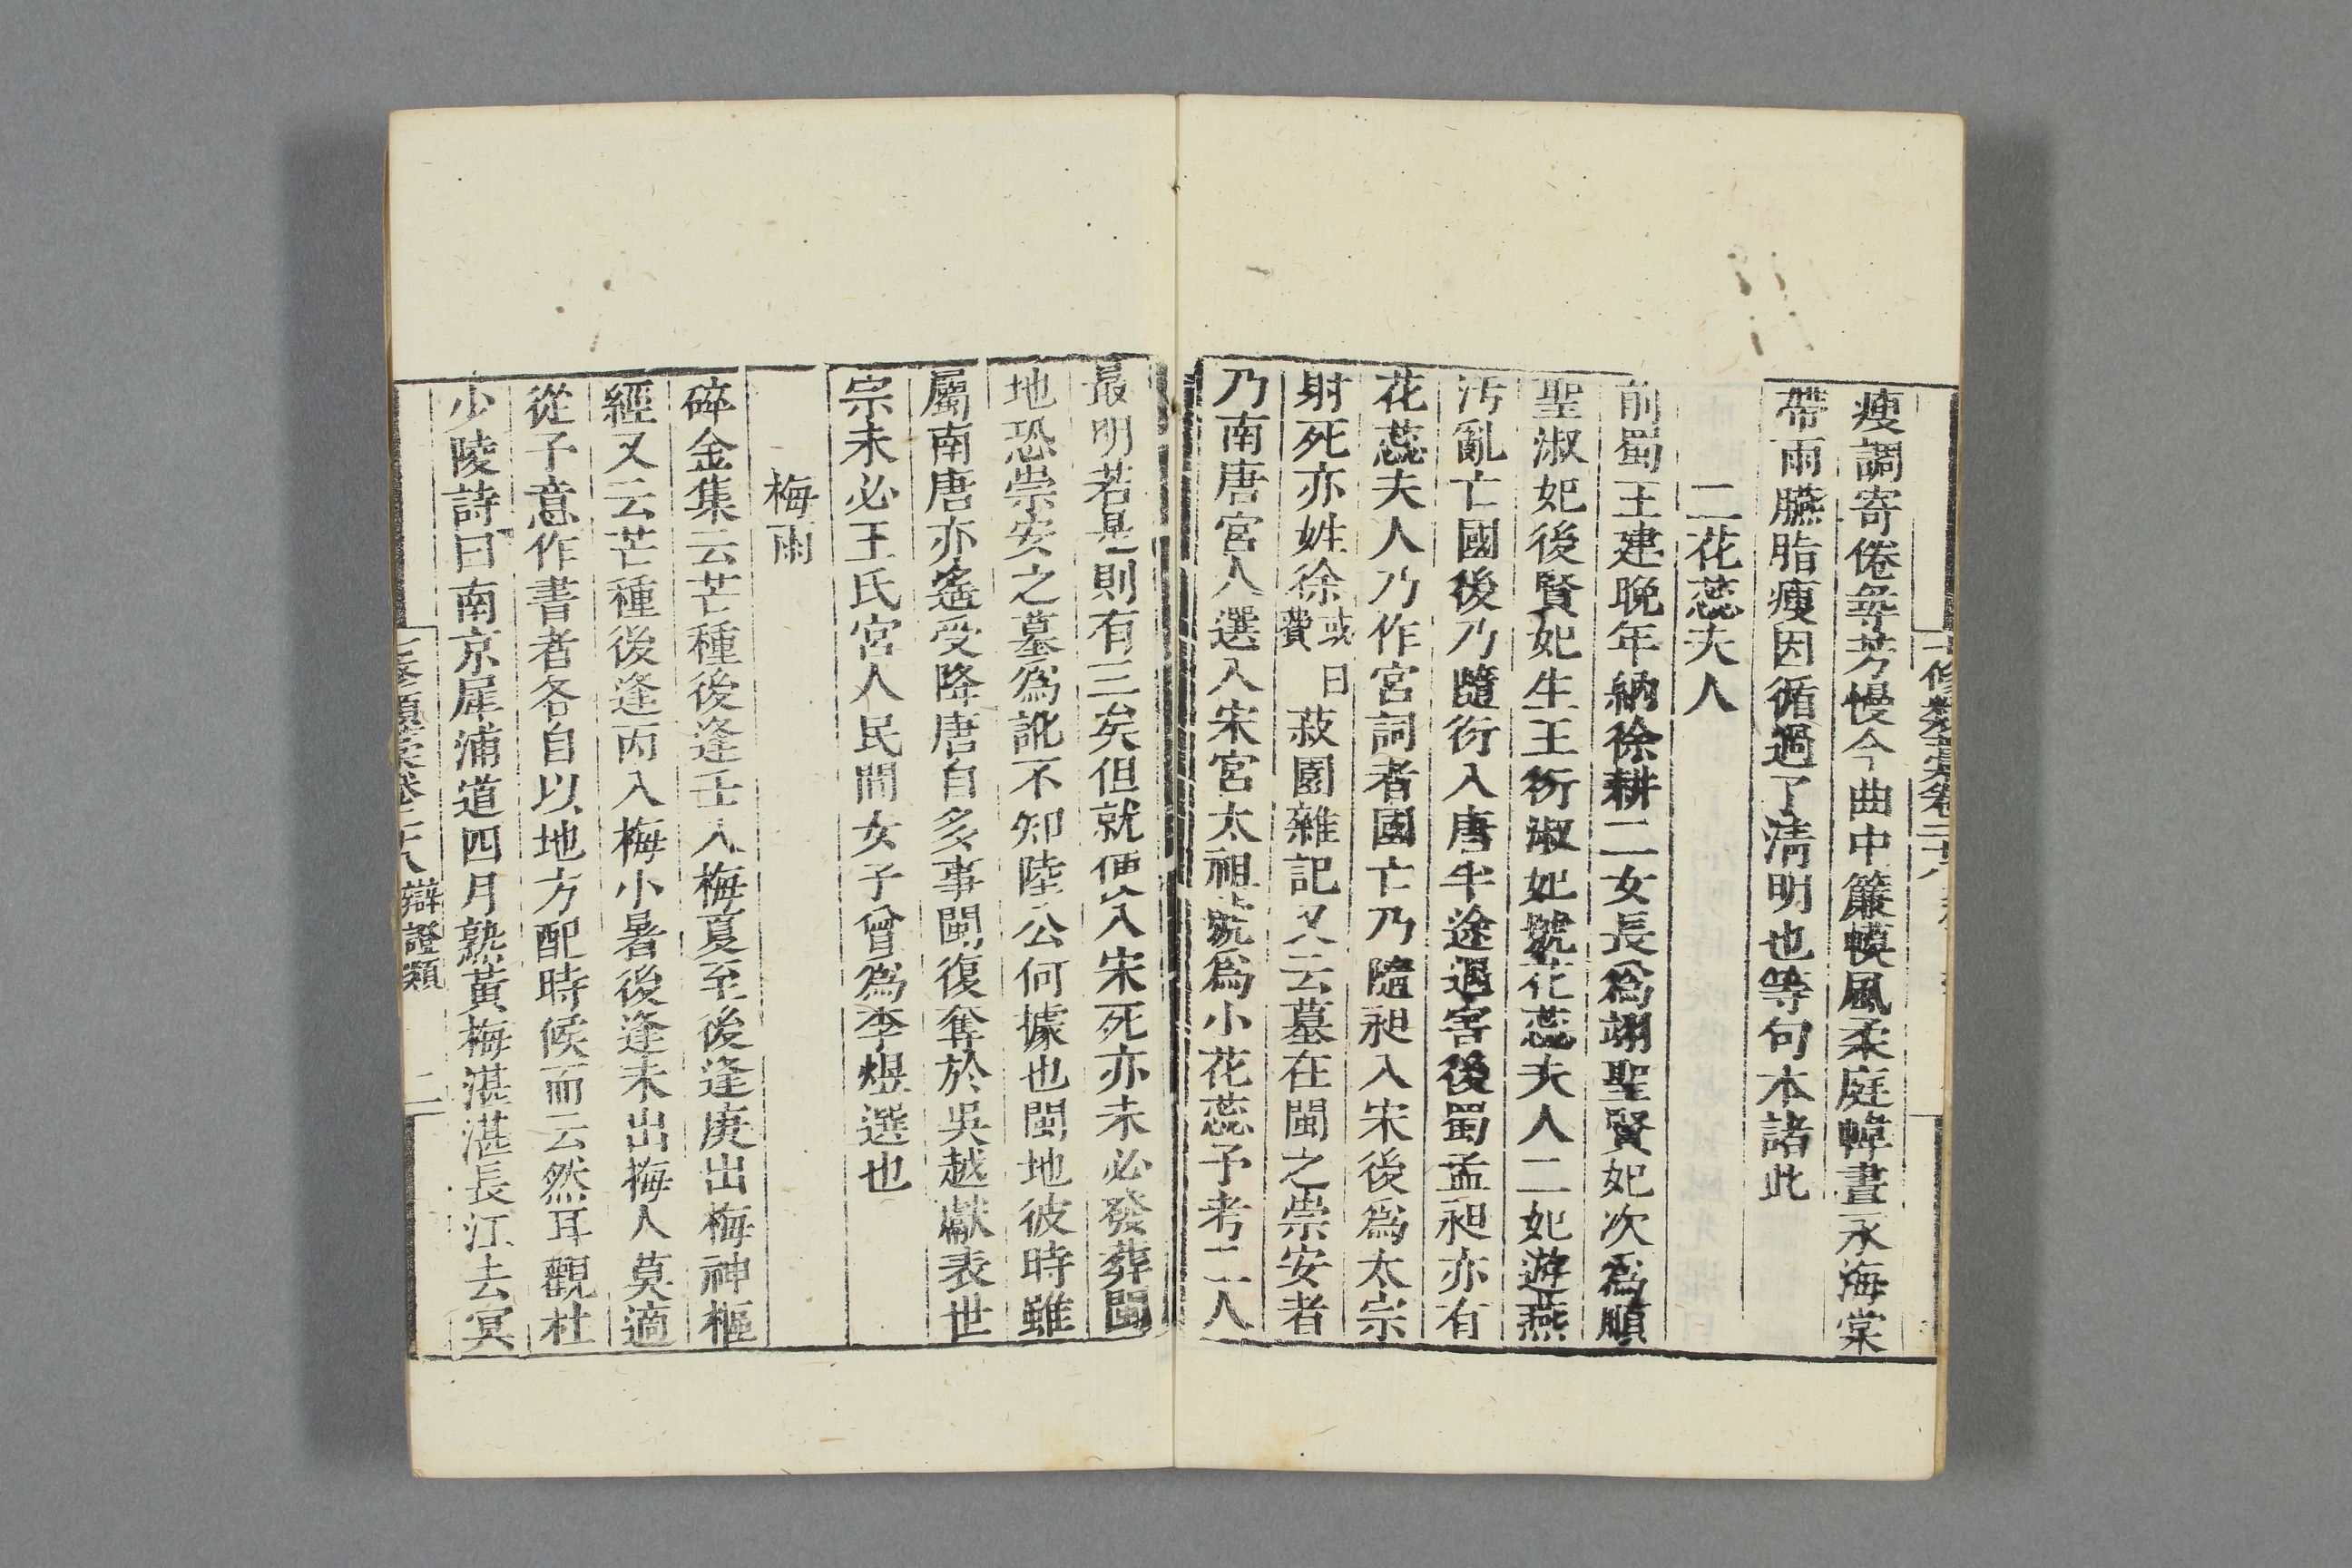 七修類藁卷二十八
瘦調寄倦㝷芳慢今曲中簾幙風柔庭幃晝永海棠
帶雨臙脂瘦因循過了淸明也等句本諸此
二花蕊夫人
前蜀王建晚年納徐耕二女長爲翊聖賢妃次爲順
聖淑妃後賢妃生王衍淑妃號花蕊夫人二妃遊燕
汚亂亡國後乃隨衍入唐半途遇害後蜀孟昶亦有
花蕊夫人乃作宮詞者國亡乃隨昶入宋後爲太宗
射死亦姓徐或曰費菽園雜記又云墓在閩之崇安者
乃南唐宮人選入宋宮太祖號爲小花蕊予考二人
最明若是則有三矣但就便入宋死亦未必發葬閩
地恐崇安之墓爲訛不知陸公何據也閩地彼時雖
屬南唐亦遙受降唐自多事閩復奪於吳越獻表世
宗未必王氏宮人民間女子曾爲李煜選也
梅雨
碎金集云芒種後逢壬入梅夏至後逢庚出梅神樞
經又云芒種後逢丙入梅小暑後逢未出梅人莫適
從予意作書者各自以地方配時候而云然耳觀杜
少陵詩曰南京犀浦道四月熟黃梅湛湛長江去冥
七修類藁卷二十八 辯證類 二